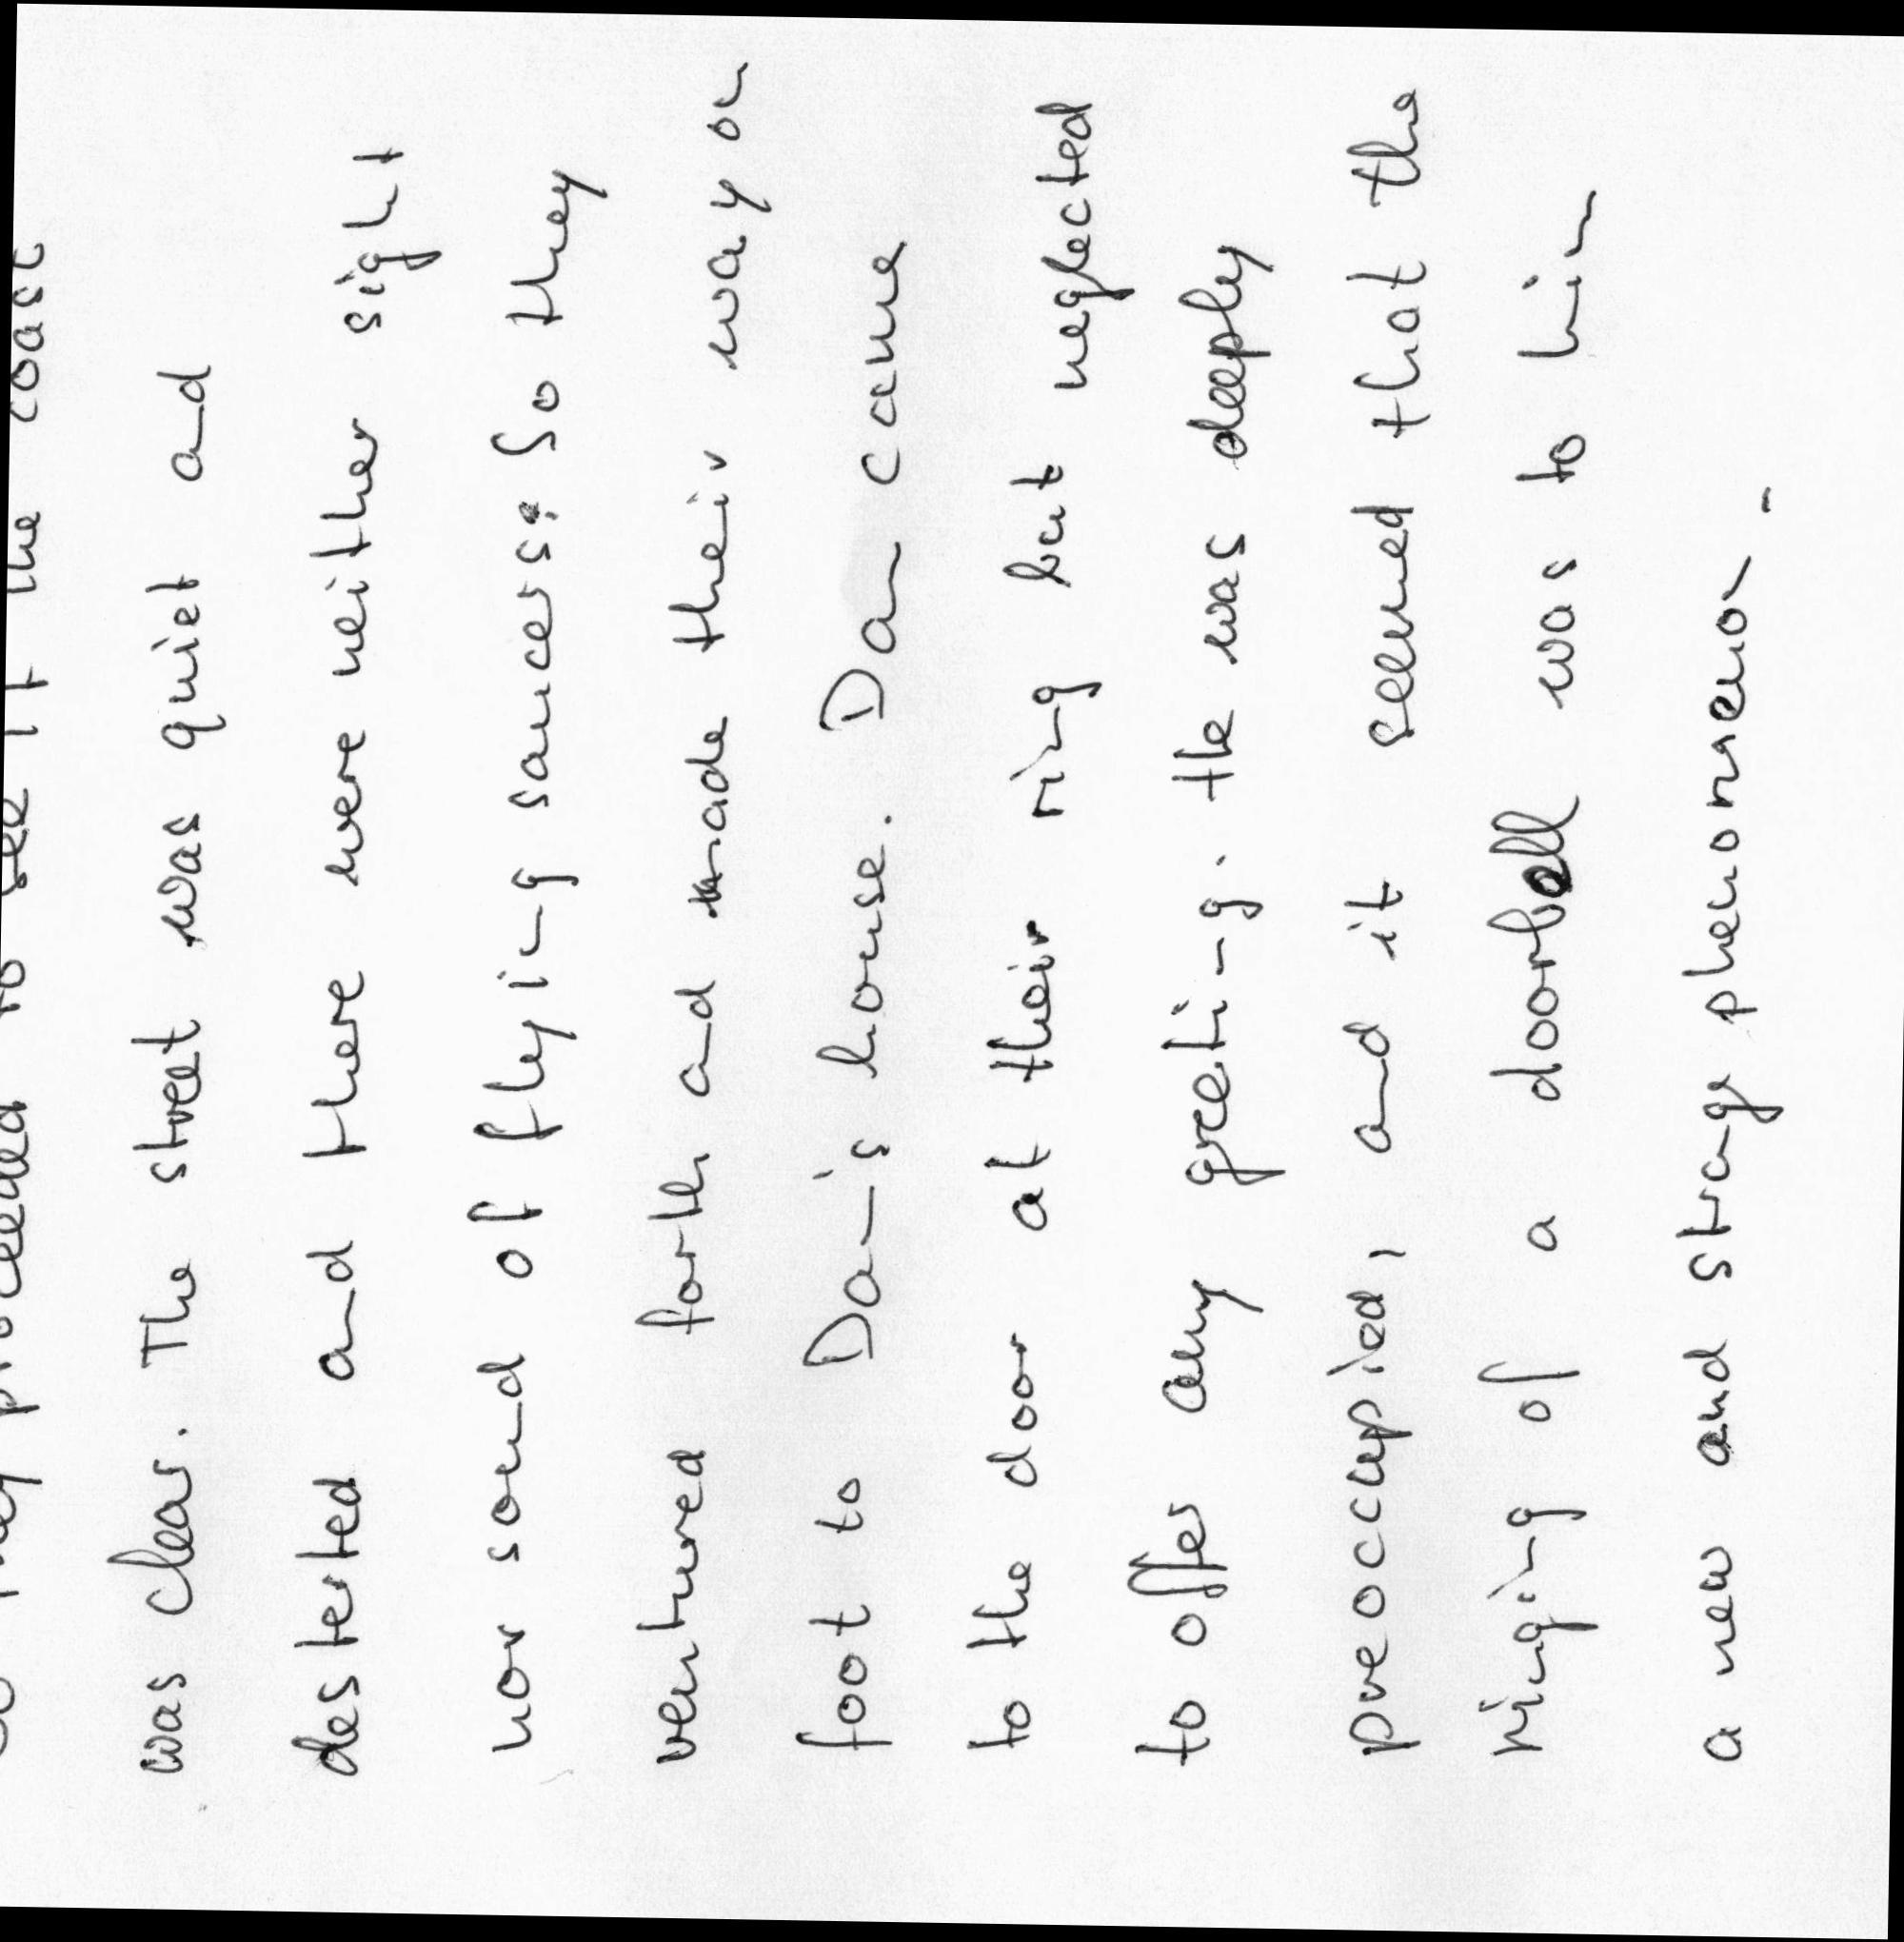 they proceeded to see if the coast
was clear. The street was quiet and
deserted and there were neither sight
nor sound of flying saucers: So they
ventured forth and made their way on
foot to Dan's house. Dan came
to the door at their ring but neglected
to offer any greeting. He was deeply
preoccupied, and it seemed that the
ringing of a doorbell was to him
a new and strange phenomaenon.